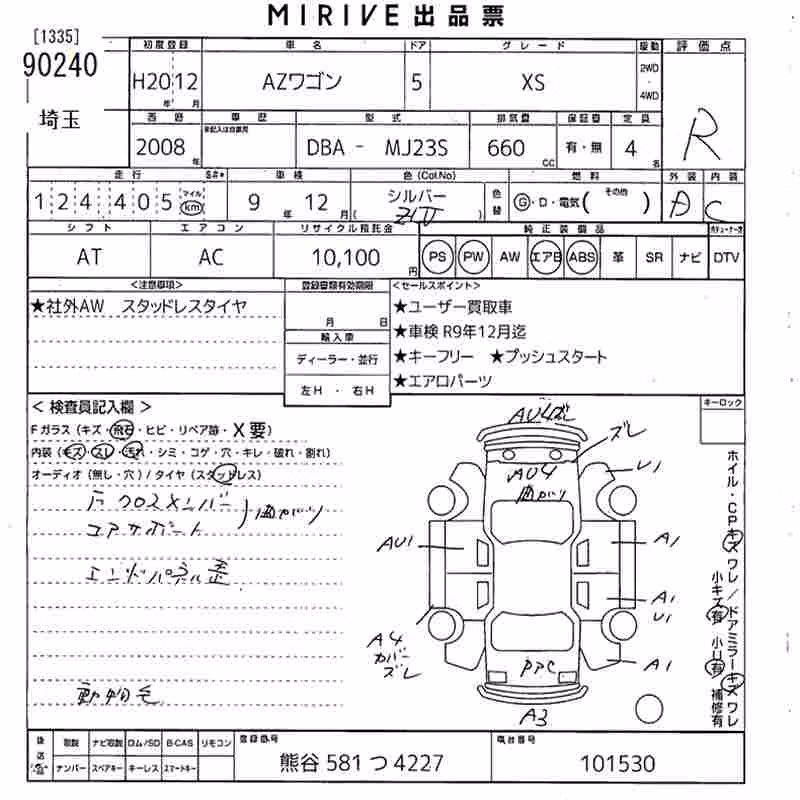 MIRIVE 出品票
[1335]
90240
埼玉
初度登録 車名 ドア グレード 駆動 評価点
H20 12 年 月 AZワゴン 5 XS 2WD・4WD R
西暦 車歴 型式 排気量 保証書 定員
2008年 未記入は自家用 DBA - MJ23S 660cc 有・無 4名
走行 S#* 車検 色(Col.No) 燃料 外装 内装
124,405 マイル km 9年 12月 シルバー ( ) 色替 G・D・電気( その他 ) A C
シフト エアコン リサイクル預託金 純正装備品
AT AC 10,100円 PS PW AW エアB ABS 革 SR ナビ DTV
<注意事項> 登録書類有効期限 <セールスポイント>
★社外AW スタッドレスタイヤ
月 日
輸入車
ディーラー・並行
左H・右H
★ユーザー買取車
★車検 R9年12月迄
★キーフリー ★プッシュスタート
★エアロパーツ
キーロック
< 検査員記入欄 >
Fガラス (キズ・飛石・ヒビ・リペア跡・X要)
内装 (キズ・スレ・汚れ・シミ・コゲ・穴・キレ・破れ・割れ)
オーディオ (無し・穴) / タイヤ (スタッドレス)
F クロスメンバー
コアサポート
曲がり
エンドパネル歪
動物毛
AU4ズレ
ズレ
AU4
曲がり
U1
AU1
A1
A1
U1
A4
カバー
ズレ
A1
PPC
A3
ホイル・CPキズ ワレ / ドアミラーキズ ワレ
小キズ有 小U有 補修有
後送品
取説 ナビ取説 ロム/SD B-CAS リモコン
ナンバー スペアキー キーレス スマートキー
登録番号
熊谷 581 つ 4227
車台番号
101530